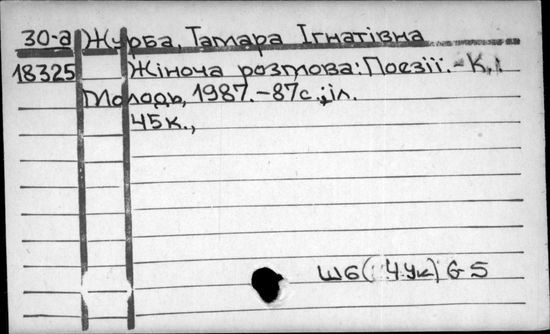 30-а Журба, Тамара Ігнатівна
18325 Жіноча розмова: Поезії. - К.:
Молодь, 1987. - 87с.; іл.
45к.,
Ш6(4Ук) 6-5